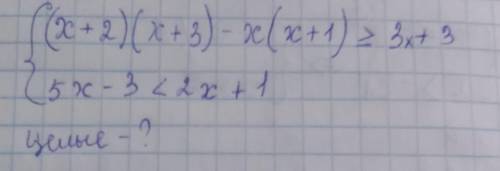 (x+2)(x+3)-x(x+1) ≥ 3x+3
5x-3 < 2x+1
целые - ?